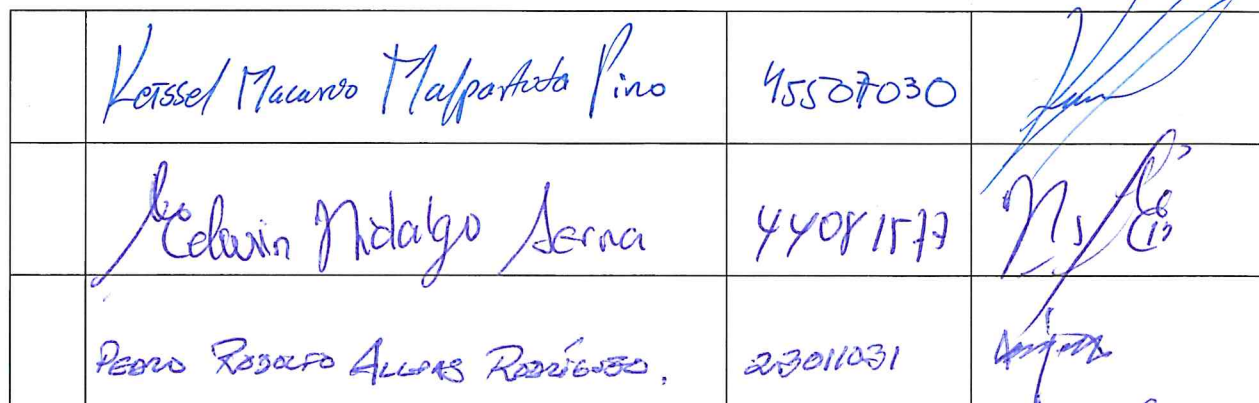 Keissel Macarvo Malpartida Pino 45507030
Edwin Hidalgo Serna 44081577
PEDRO RODOLFO RODRÍGUEZ. 23011031